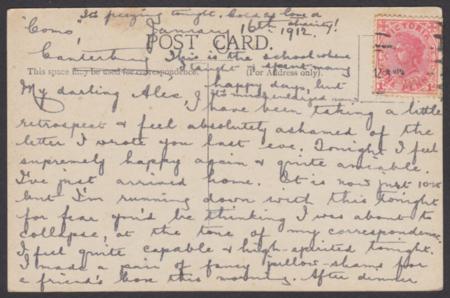 It's freezing tonight. Cold as love &
charity!
"Como", January 16th, 1912.
Canterbury
POST CARD.
This is the school where
I taught & spent many
This space may be used for correspondence. (For Address only.)
happy days, but
My darling Alec, I have been taking a little
retrospect & feel absolutely ashamed of the
letter I wrote you last eve. Tonight I feel
supremely happy again & quite amiable.
I've just arrived home. It is now just 10
but I'm running down with this tonight
for fear you'd be thinking I was about to
collapse, at the tone of my correspondence.
I feel quite capable & high-spirited tonight.
I made a pair of fancy pillow-shams for
a friend's box this morning. After dinner
VICTORIA